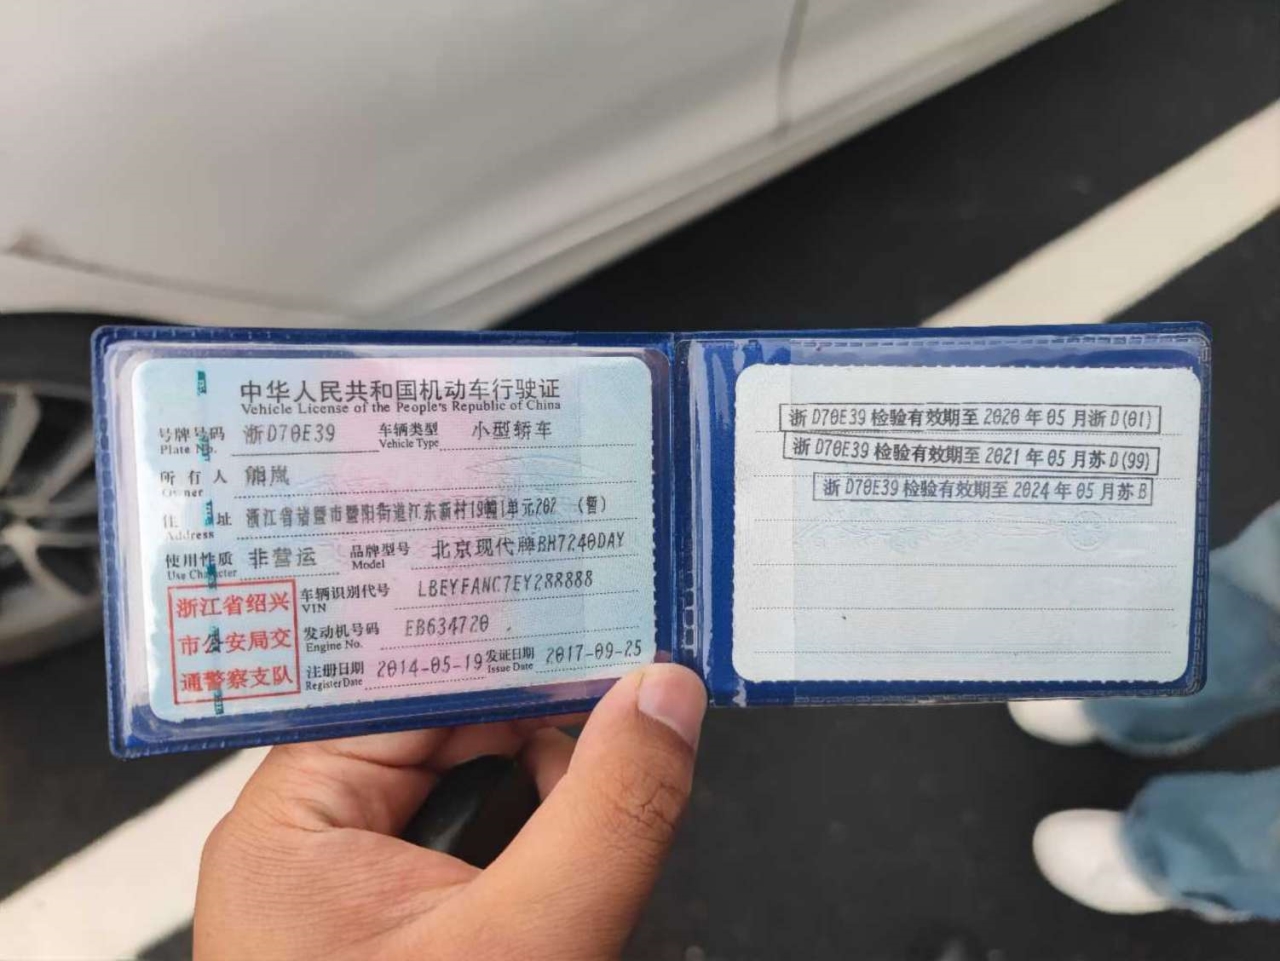 中华人民共和国机动车行驶证
Vehicle License of the People's Republic of China
号牌号码 浙D70E39 车辆类型 小型轿车
Plate No. Vehicle Type
所有人 熊岚
Owner
住址 浙江省诸暨市暨阳街道江东新村19幢1单元202 (暂)
Address
使用性质 非营运 品牌型号 北京现代牌BH7240DAY
Use Character Model
浙江省绍兴
市公安局交
通警察支队
车辆识别代号 LBEYFANC7EY288888
VIN
发动机号码 EB634720
Engine No.
注册日期 2014-05-19 发证日期 2017-09-25
Register Date Issue Date
浙D70E39检验有效期至2020年05月浙D(01)
浙D70E39检验有效期至2021年05月苏D(99)
浙D70E39检验有效期至2024年05月苏B